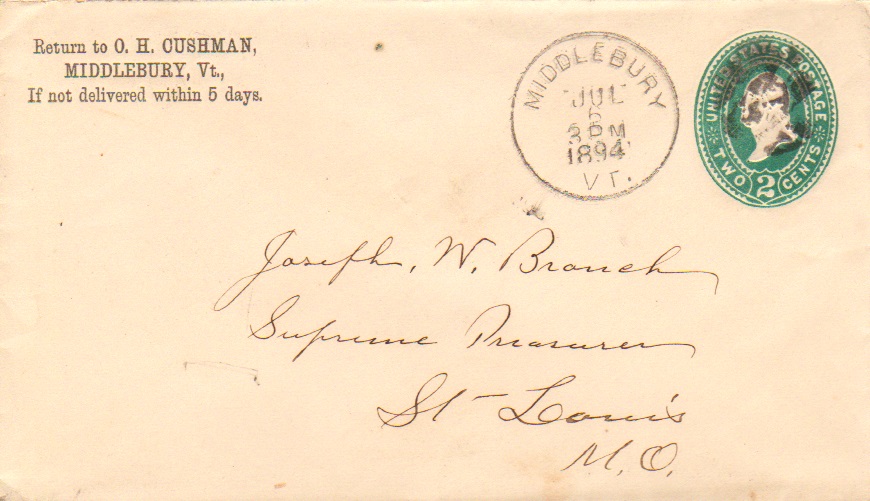 Return to O. H. CUSHMAN,
MIDDLEBURY, Vt.,
If not delivered within 5 days.
MIDDLEBURY
JUL
6
3 PM
1894
VT.
UNITED STATES POSTAGE
TWO 2 CENTS
Joseph, W. Branch
Supreme Treasurer
St- Louis
M.O.